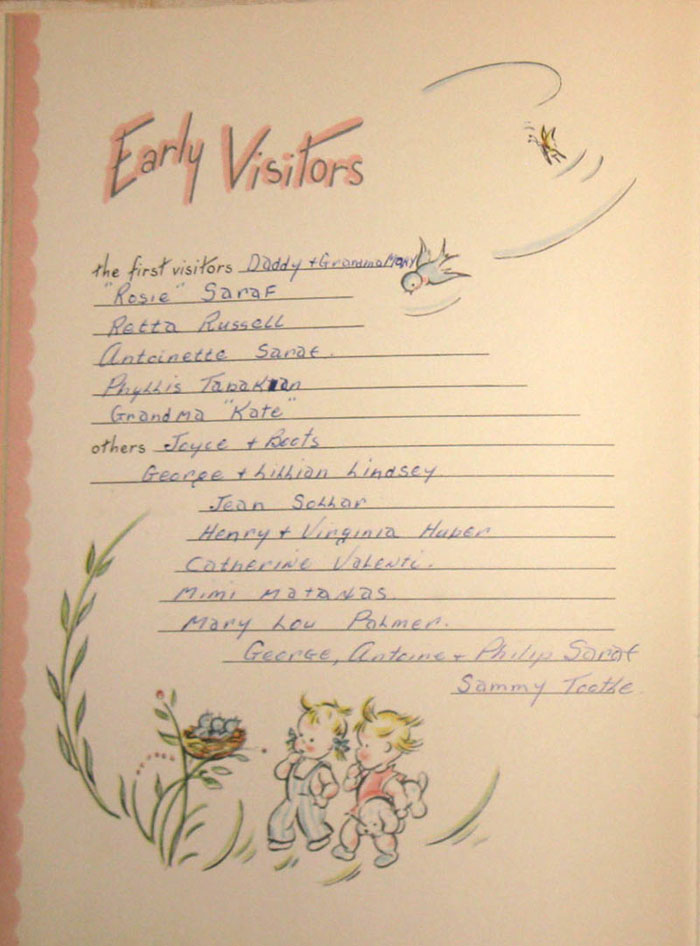 Early Visitors
the first visitors Daddy + Grandma Mary
"Rosie" Saraf
Retta Russell
Antoinette Saraf.
Phyllis Tabakian
Grandma "Kate"
others Joyce + Boots
George + Lillian Lindsey
Jean Sollar
Henry + Virginia Huber
Catherine Valenti.
Mimi Matanas.
Mary Lou Palmer.
George, Antoine + Philip Saraf
Sammy Tootle.